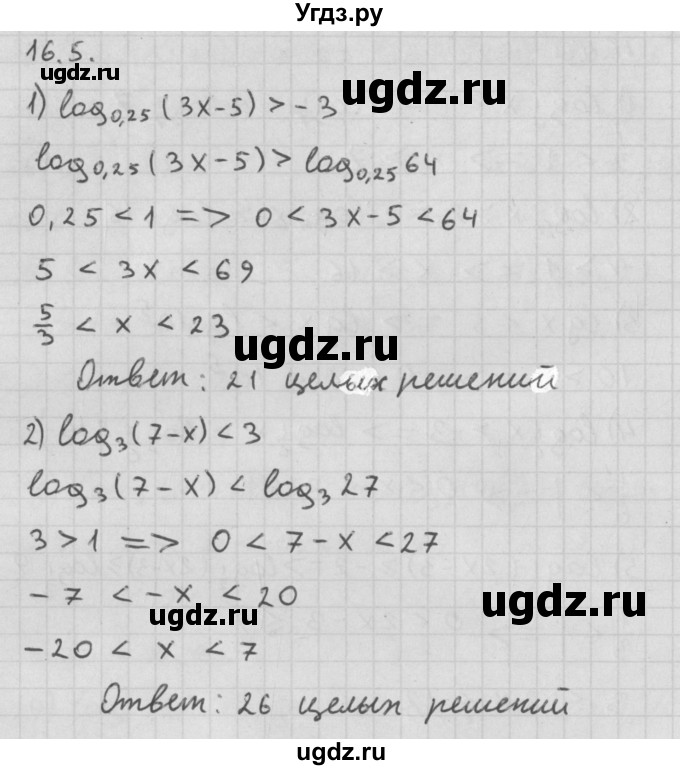 Угдз.ру
16.5.
ugdz.ru
1) log₀,₂₅(3x-5) > -3
ugdz.ru
log₀,₂₅(3x-5) > log₀,₂₅64
0,25 < 1 => 0 < 3x-5 < 64
5 < 3x < 69
5/3 < x < 23
ugdz.ru
Ответ: 21 целых решений
2) log₃(7-x) < 3
log₃(7-x) < log₃27
3 > 1 => 0 < 7-x < 27
-7 < -x < 20
ugdz.ru
ugdz.ru
-20 < x < 7
Ответ: 26 целых решений
ugdz.ru